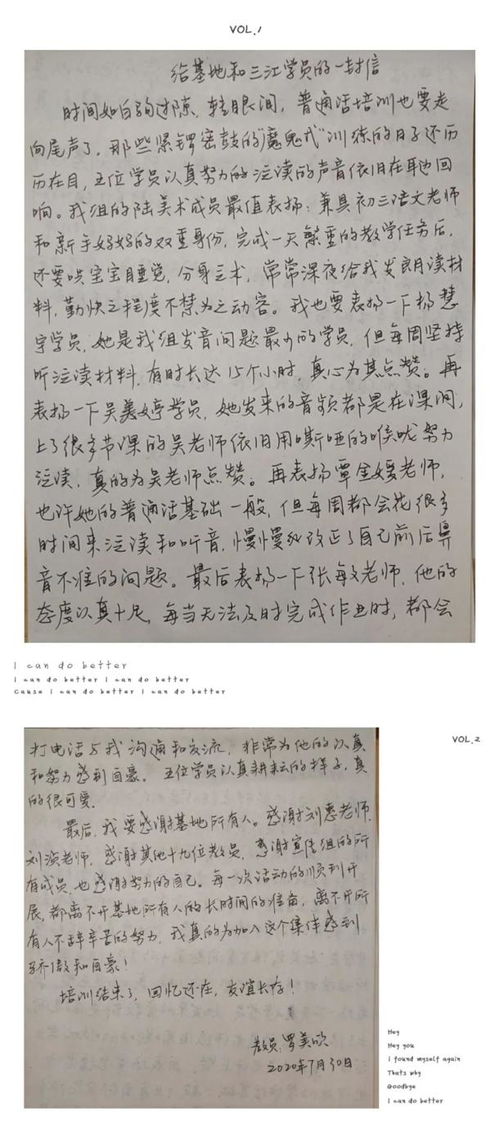 VOL.1
给基地和三江学员的一封信
时间如白驹过隙，转眼间，普通话培训也要走
向尾声了，那些紧锣密鼓的"魔鬼式"训练的日子还历
历在目，五位学员认真努力的泛读的声音依旧在耳边回
响。我组的陆美术成员最值表扬：兼具初三语文老师
和新手妈妈的双重身份，完成一天繁重的教学任务后，
还要哄宝宝睡觉，分身乏术，常常深夜给我发朗读材
料，勤快之程度不禁为之动容。我也要表扬一下杨慧
宇学员，她是我组发音问题最少的学员，但每周坚持
听泛读材料，有时长达15个小时，真心为其点赞。再
表扬一下吴美婷学员，她发来的音频都是在课间，
上了很多节课的吴老师依旧用嘶哑的喉咙努力
泛读，真的为吴老师点赞。再表扬覃金媛老师，
也许她的普通话基础一般，但每周都会花很多
时间来泛读和听音，慢慢改正了自己前后鼻
音不准的问题。最后表扬一下张敏老师，他的
态度认真十足，每当无法及时完成作业时，都会
I can do better
I can do better I can do better
Cause I can do better I can do better
VOL.2
打电话与我沟通和交流，非常为他的认真
和努力感到自豪。五位学员认真耕耘的样子，真
的很可爱。
最后，我要感谢基地所有人。感谢刘惠老师，
刘滨老师，感谢其他十九位教员，感谢宣传组的所
有成员也感谢努力的自己。每一次活动的顺利开
展，都离不开基地所有人的长时间的准备，离不开所
有人不辞辛苦的努力，我真的为加入这个集体感到
骄傲和自豪！
培训结束了，回忆还在，友谊长存！
教员：罗美欣
2020年7月30日
Hey
Hey you
I found myself again
Thats why
Goodbye
I can do better